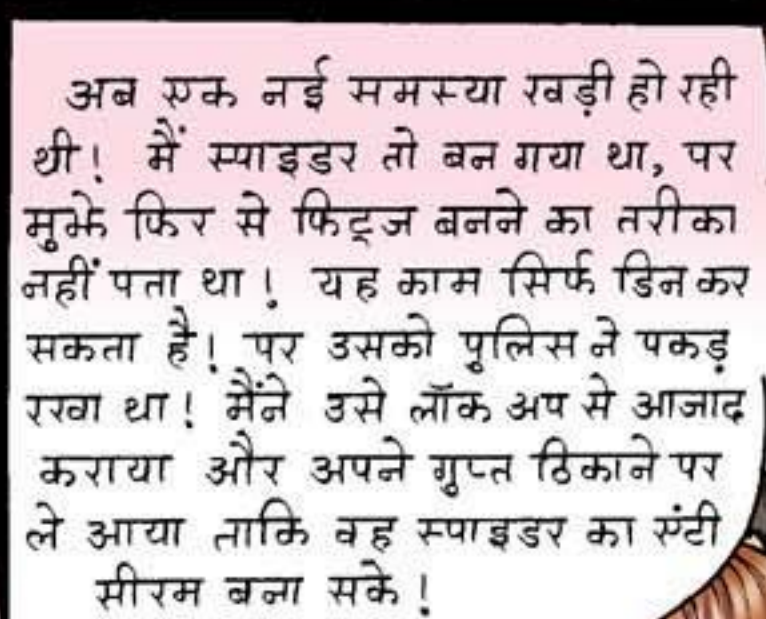 अब एक नई समस्या खड़ी हो रही
थी! मैं स्पाइडर तो बन गया था, पर
मुझे फिर से फिट्ज बनने का तरीका
नहीं पता था! यह काम सिर्फ डिन कर
सकता है! पर उसको पुलिस ने पकड़
रखा था! मैंने उसे लॉक अप से आजाद
कराया और अपने गुप्त ठिकाने पर
ले आया ताकि वह स्पाइडर का एंटी
सीरम बना सके!